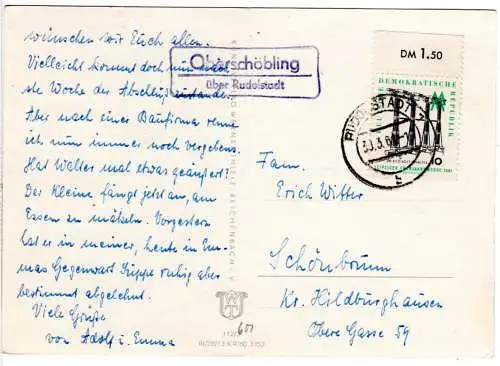 wünschen wir Euch allen.
Vielleicht kommt doch nun noch
ste Woche der Abschluß zustande.
Aber nach einer Baufirma renne
ich nun immer noch vergebens.
Hat Walter mal etwas geäußert?
Der Kleine fängt jetzt an, am
Essen zu mäkeln. Vorgestern
hat er in meiner, heute in Em-
mas Gegenwart Suppe ruhig aber
bestimmt abgelehnt.
Viele Grüße
von Adolf u. Emma
Oberschöbling
über Rudolstadt
DM 1.50
DEMOKRATISCHE REPUBLIK
10
RUDOLSTADT
30.3.61
b
Fam.
Erich Witter
Schönbrunn
Kr. Hildburghausen
Obere Gasse 59
REICHENBACH